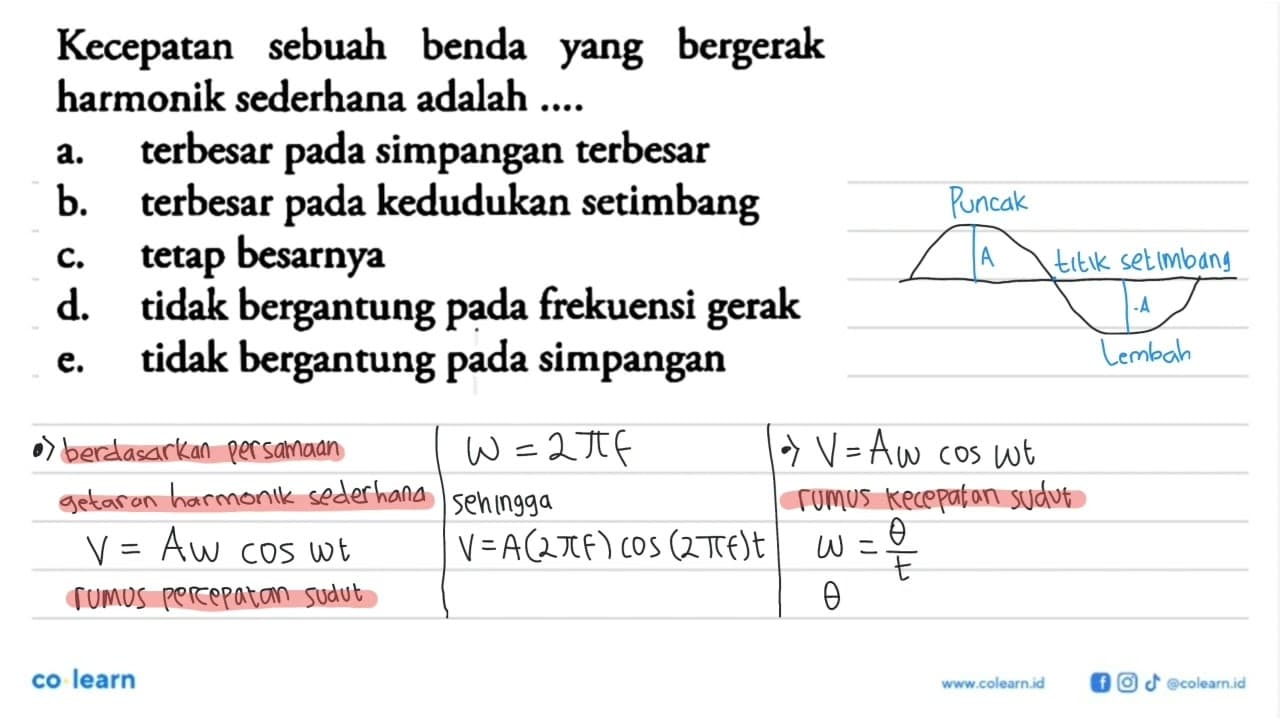 Kecepatan sebuah benda yang bergerak
harmonik sederhana adalah ....
a. terbesar pada simpangan terbesar
b. terbesar pada kedudukan setimbang
c. tetap besarnya
d. tidak bergantung pada frekuensi gerak
e. tidak bergantung pada simpangan
Puncak
A
titik setimbang
-A
Lembah
•) berdasarkan persamaan
getaran harmonik sederhana
V = Aω cos ωt
rumus percepatan sudut
ω = 2πf
sehingga
V = A(2πf) cos (2πf)t
•) V = Aω cos ωt
rumus kecepatan sudut
ω = θ/t
θ
co learn
www.colearn.id
@colearn.id